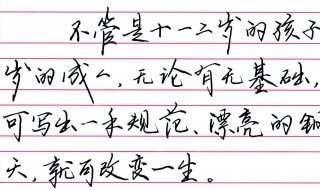 不管是十一二岁的孩子
岁的成人，无论有无基础，
可写出一手规范、漂亮的钢
天，就可改变一生。